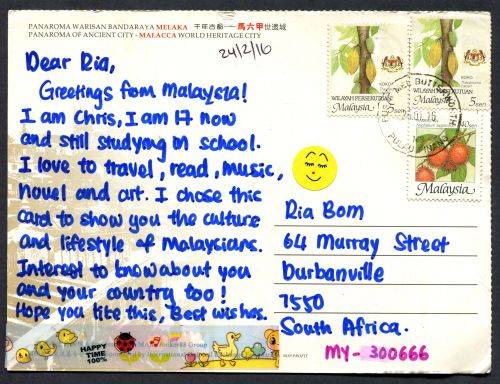 PANAROMA WARISAN BANDARAYA MELAKA 千年古都——馬六甲世遗城
PANAROMA OF ANCIENT CITY - MALACCA WORLD HERITAGE CITY
24/2/16
Dear Ria,
Greetings from Malaysia!
I am Chris, I am 17 now
and still studying in school.
I love to travel, read, music,
novel and art. I chose this
card to show you the culture
and lifestyle of Malaysians.
Interest to know about you
and your country too!
Hope you like this, Best wishes.
HAPPY
TIME
100%
KOKO
WILAYAH PERSEKUTUAN
Malaysia 5 sen
KOKO
WILAYAH PERSEKUTUAN
Malaysia 5 sen
BUTTERWORTH
PULAU PINANG
Malaysia
Ria Bom
64 Murray Street
Durbanville
7550
South Africa.
MY-300666